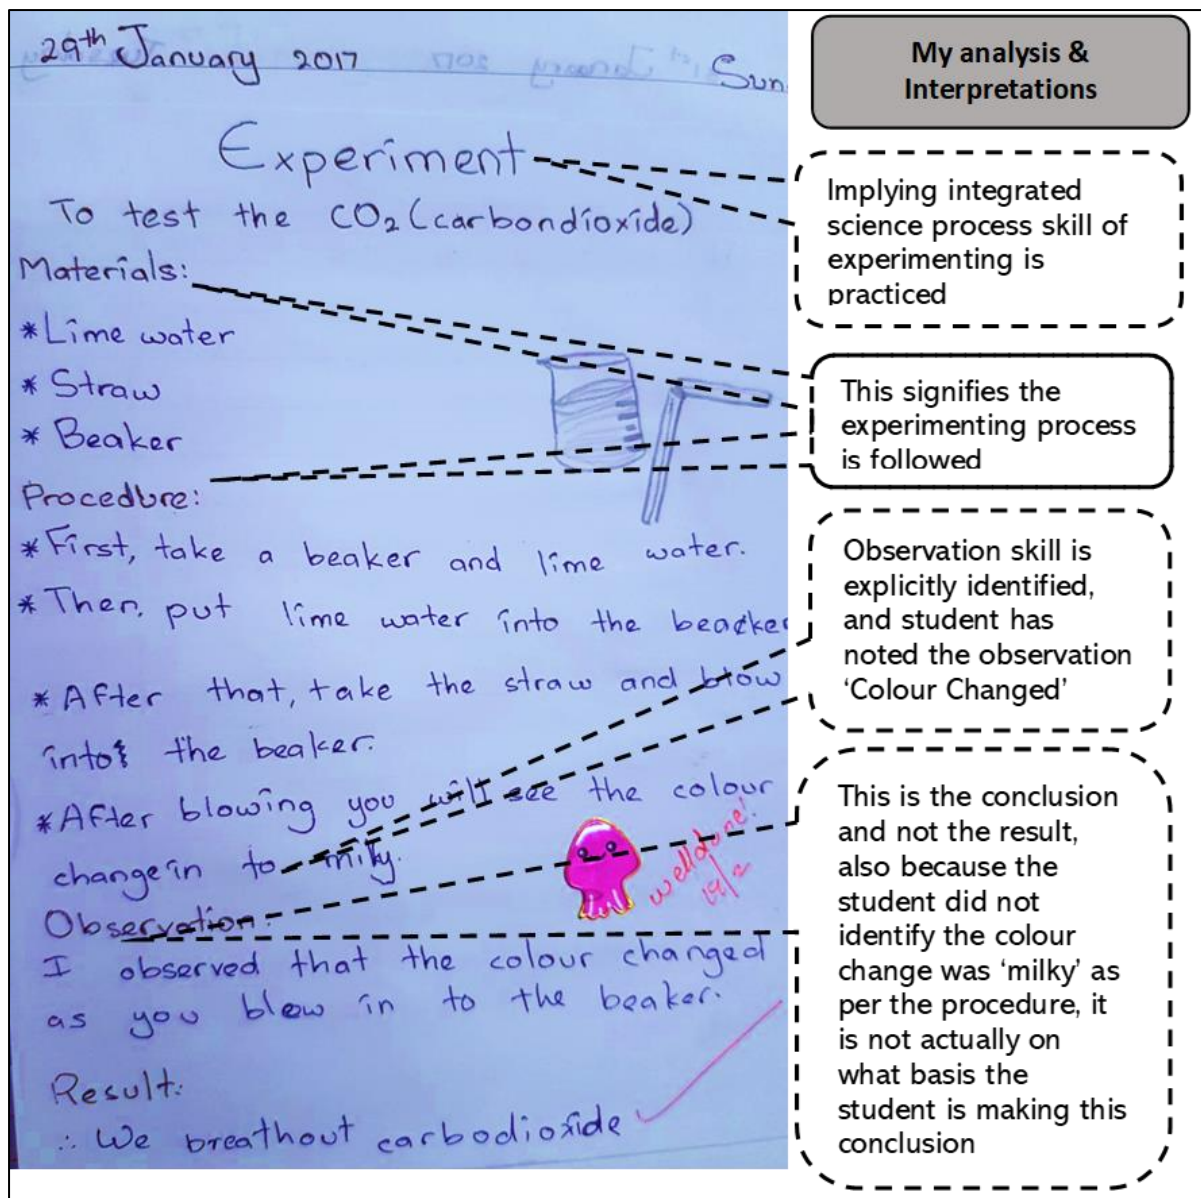 29th January 2017
Sun
Experiment
To test the CO2 (carbondioxide)
Materials:
* Lime water
* Straw
* Beaker
Procedure:
* First, take a beaker and lime water.
* Then, put lime water into the beacker
* After that, take the straw and blow
into the beaker.
* After blowing you will see the colour
change in to milky.
welldone!
19/2
Observation:
I observed that the colour changed
as you blow in to the beaker.
Result:
∴ We breathout carbodioxide
My analysis &
Interpretations
Implying integrated
science process skill of
experimenting is
practiced
This signifies the
experimenting process
is followed
Observation skill is
explicitly identified,
and student has
noted the observation
‘Colour Changed’
This is the conclusion
and not the result,
also because the
student did not
identify the colour
change was ‘milky’ as
per the procedure, it
is not actually on
what basis the
student is making this
conclusion